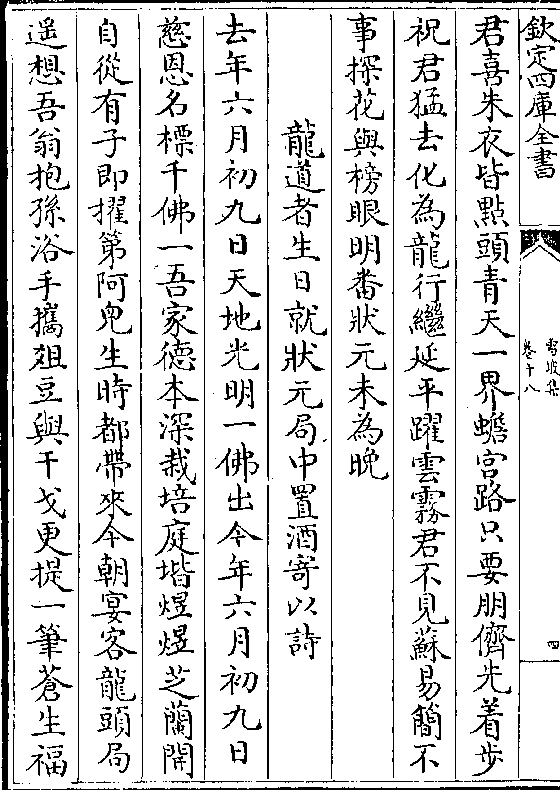 欽定四庫全書
雪坡集
卷十八
四
君喜朱衣皆點頭青天一界蟾宫路只要朋儕先着步
祝君猛去化為龍行繼延平躍雲霧君不見蘇易簡不
事探花與榜眼明畨狀元未為晚
龍道者生日就狀元局中置酒寄以詩
去年六月初九日天地光明一佛出今年六月初九日
慈恩名標千佛一吾家德本深栽培庭堦煜煜芝蘭開
自從有子即擢第阿兒生時都帶來今朝宴客龍頭局
遥想吾翁抱孫浴手攜俎豆與干戈更提一筆蒼生福